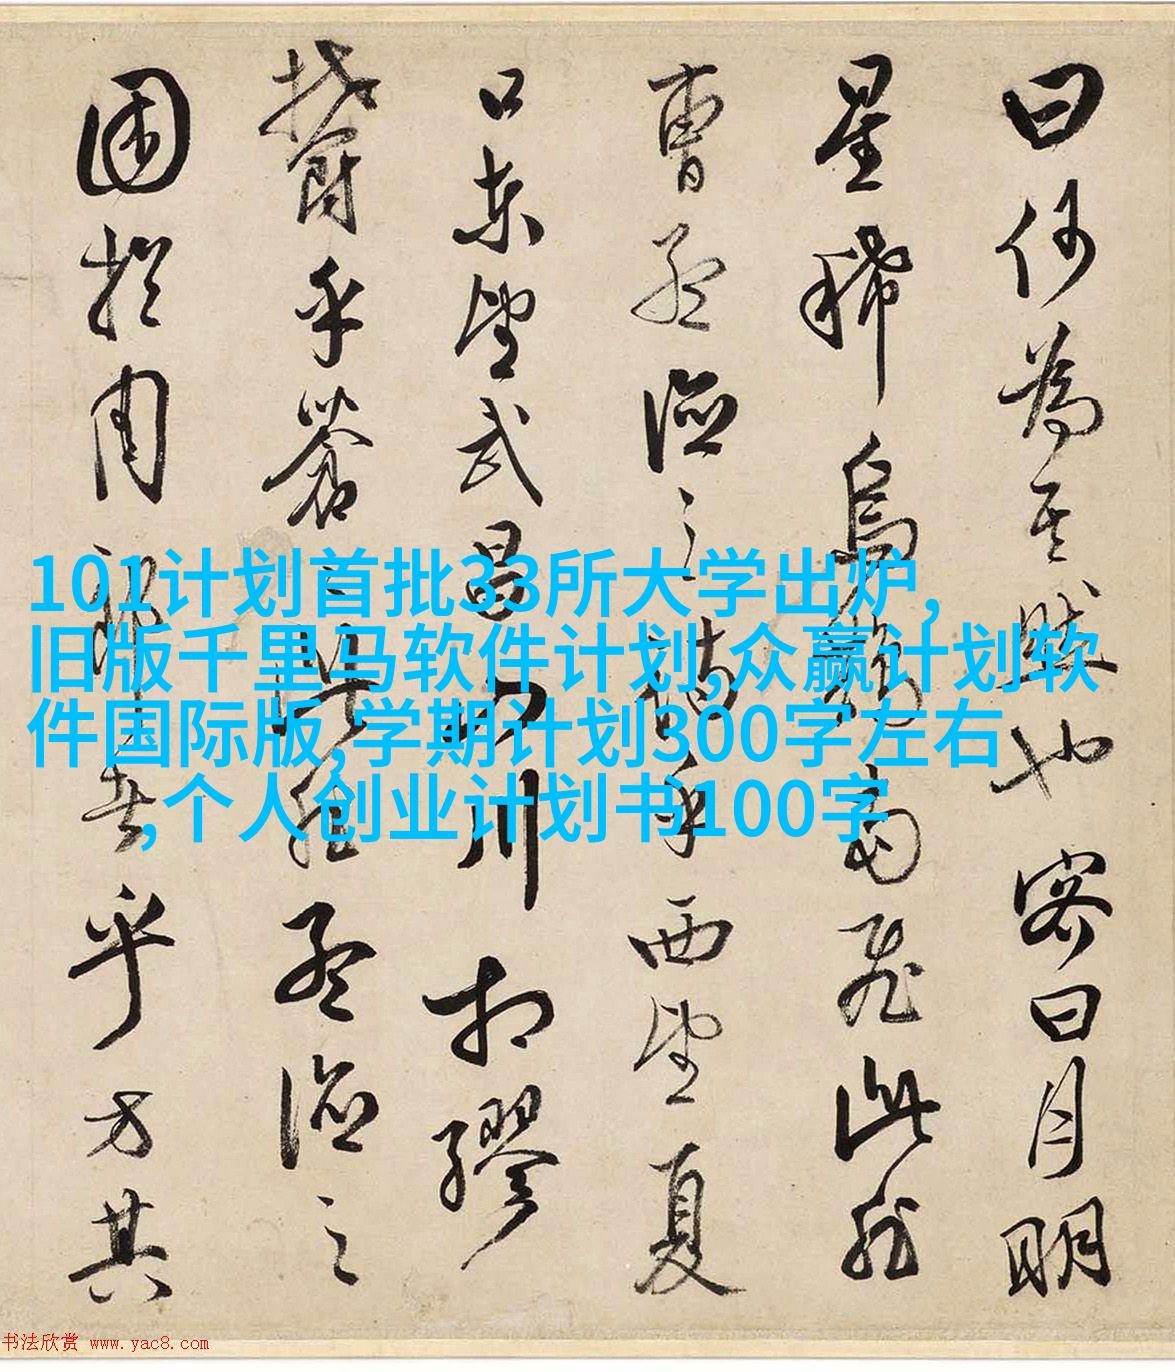 曰何為其然也客曰月明
星稀烏鵲南飛此非
曹孟德之詩乎西望夏
口東望武昌山川相繆
鬱乎蒼〻此非孟德之
困於周郎者乎方其
101计划首批33所大学出炉,
旧版千里马软件计划,众赢计划软
件国际版,学期计划300字左右
,个人创业计划书100字
书法欣赏 www.yac8.com